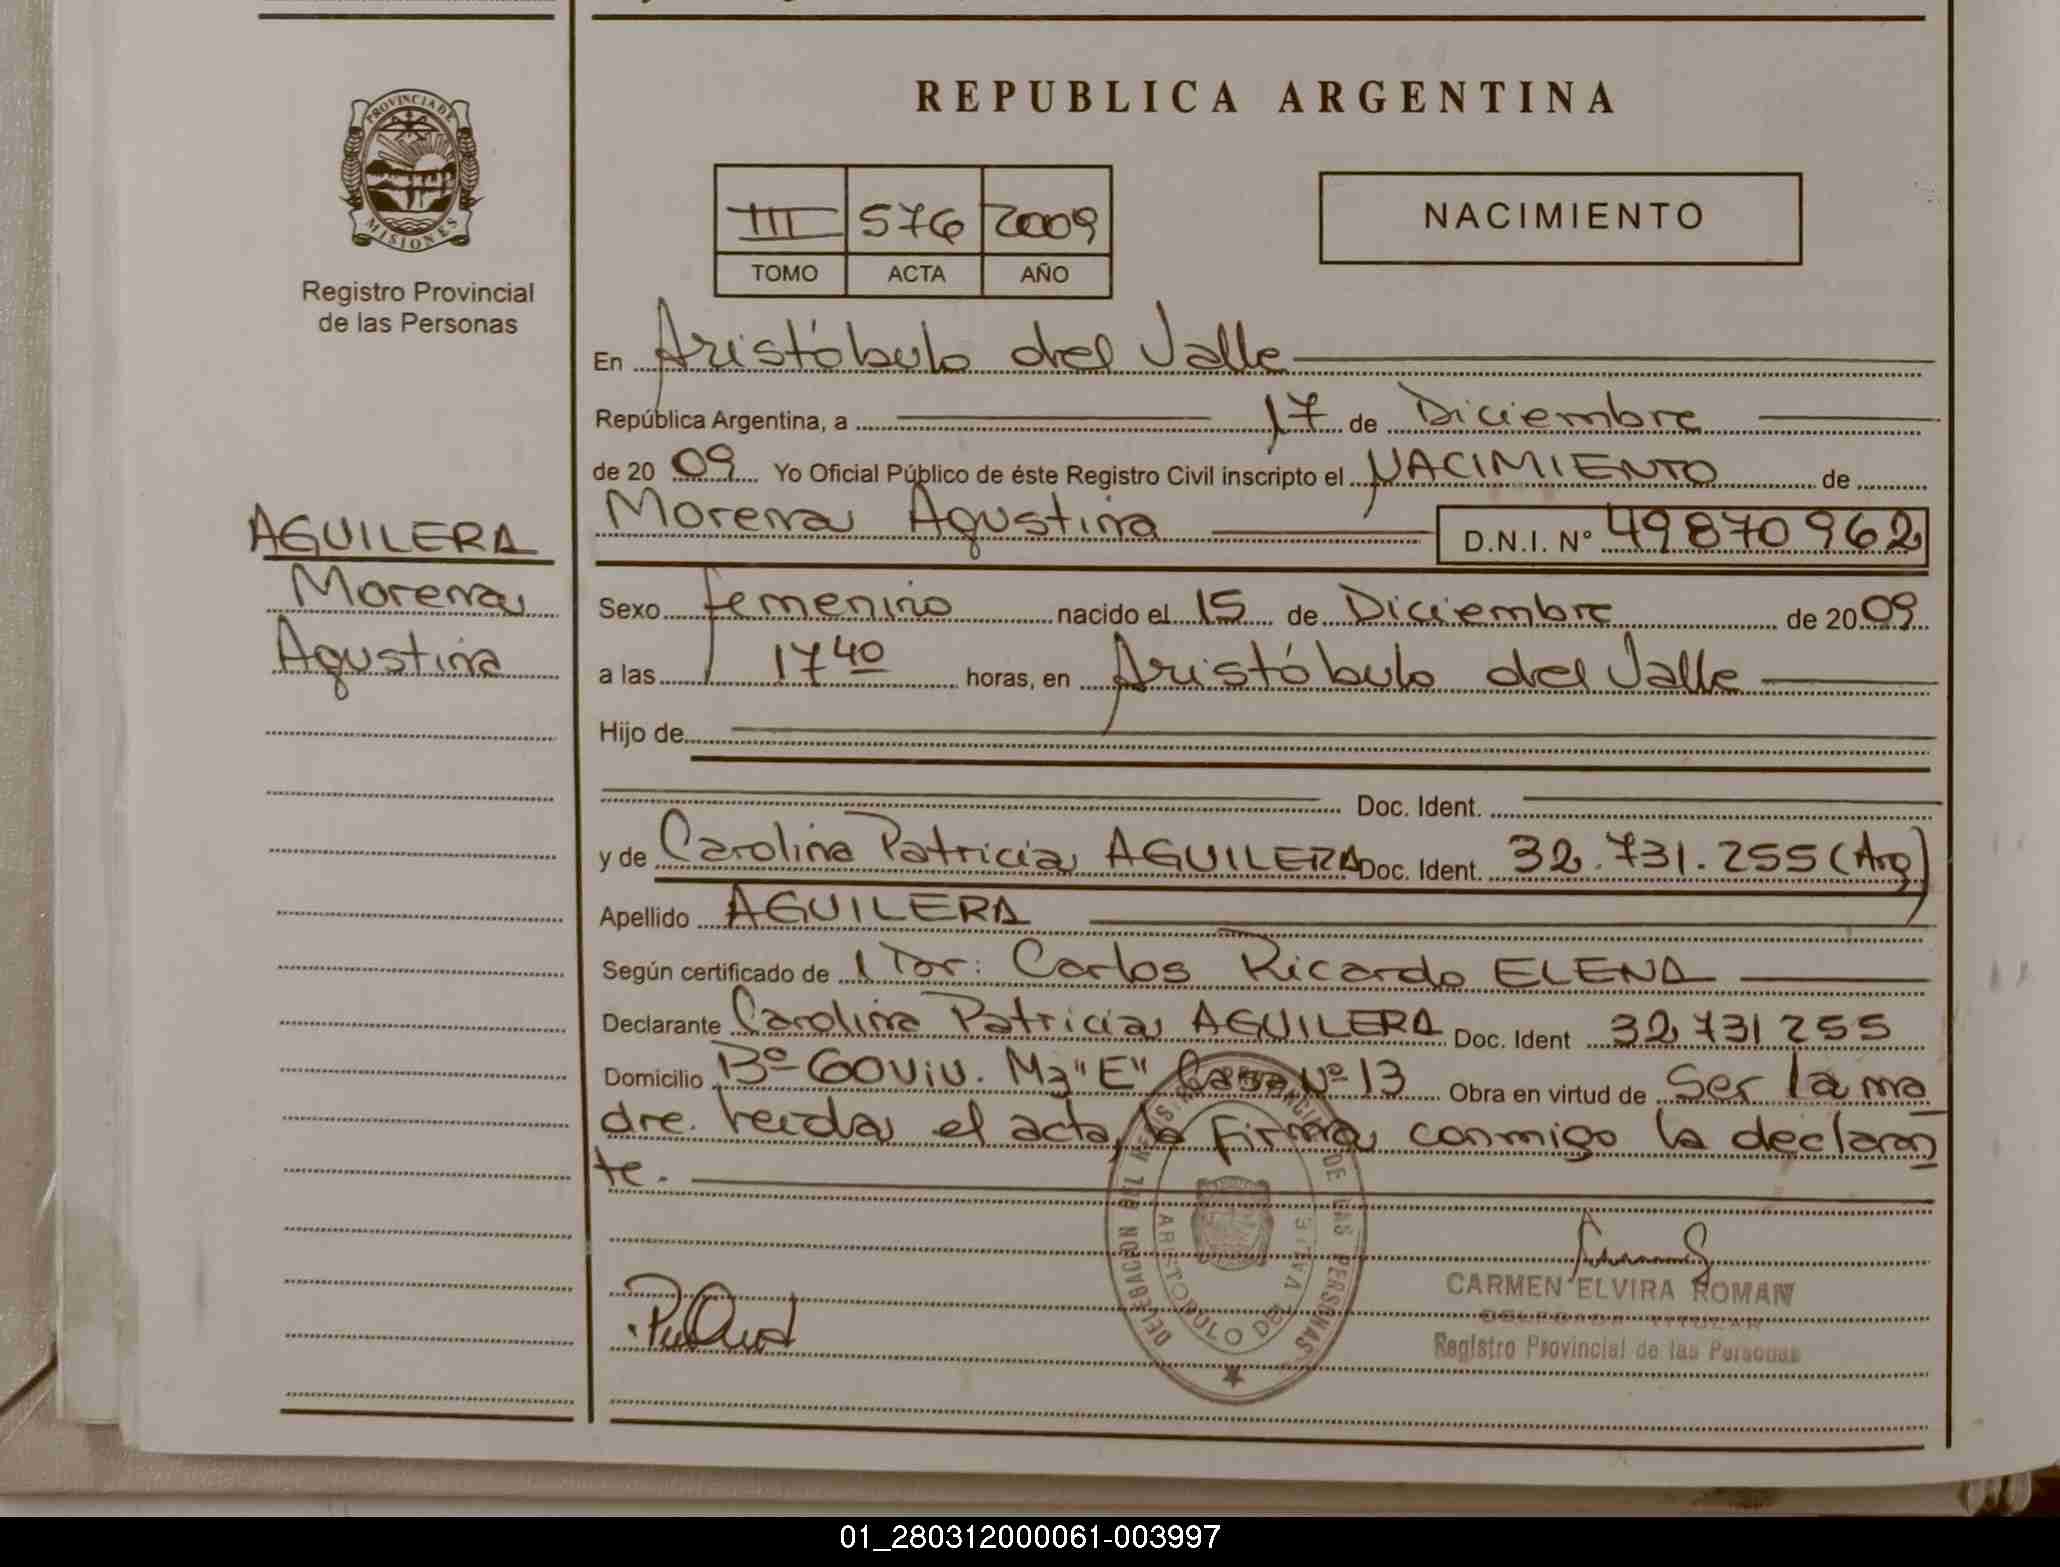 PROVINCIA DE
MISIONES
Registro Provincial
de las Personas
AGUILERA
Morena
Agustina
REPUBLICA ARGENTINA
III 576 2009
TOMO ACTA AÑO
NACIMIENTO
En Aristóbulo del Valle
República Argentina, a 17 de Diciembre
de 2009 Yo Oficial Público de éste Registro Civil inscripto el NACIMIENTO de
Morena Agustina D.N.I. N° 49870962
Sexo femenino nacido el 15 de Diciembre de 2009
a las 17 40 horas, en Aristóbulo del Valle
Hijo de
Doc. Ident.
y de Carolina Patricia AGUILERA Doc. Ident. 32.731.255 (Arg)
Apellido AGUILERA
Según certificado de Carlos Ricardo ELENA
Declarante Carolina Patricia AGUILERA Doc. Ident 32731255
Domicilio Bº 60 Viv. Mz "E" Casa Nº 13 Obra en virtud de Ser la ma
dre. leida el acta, la firma conmigo la declaran
te.
DELEGACION DEL REGISTRO PROVINCIAL DE LAS PERSONAS
ARISTOBULO DEL VALLE
CARMEN ELVIRA ROMAN
DELEGADA TITULAR
Registro Provincial de las Personas
01_280312000061-003997